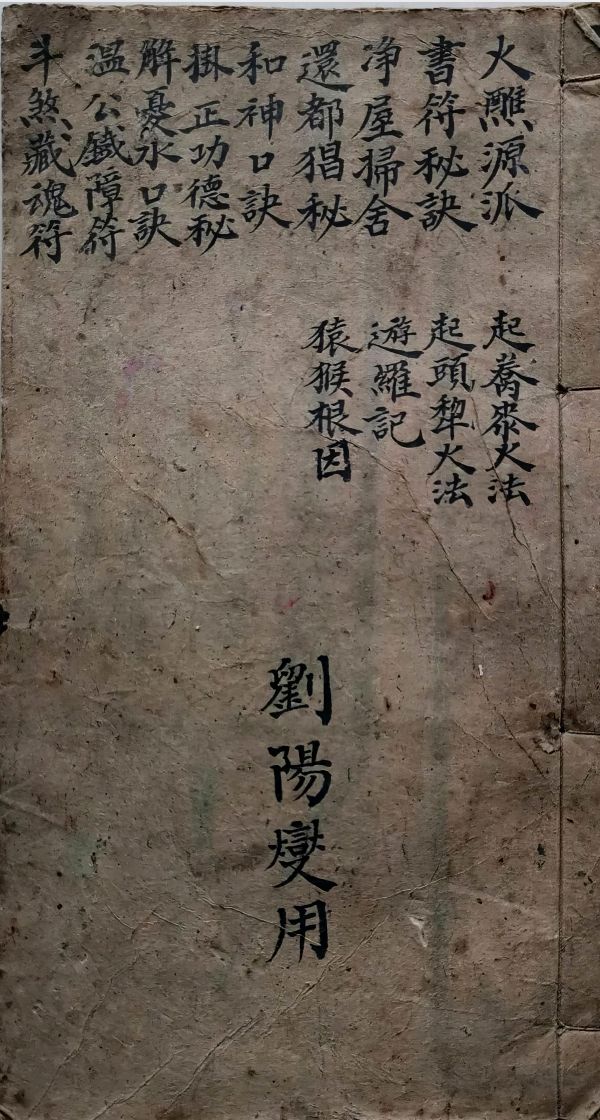 火醮源派
書符秘訣
净屋掃舍
還都猖秘
和神口訣
掛正功德秘
解憂水口訣
温公鐵障符
斗煞藏魂符
起蕎粎火法
起頭犂火法
遊羅記
猿猴根因
劉陽燮用